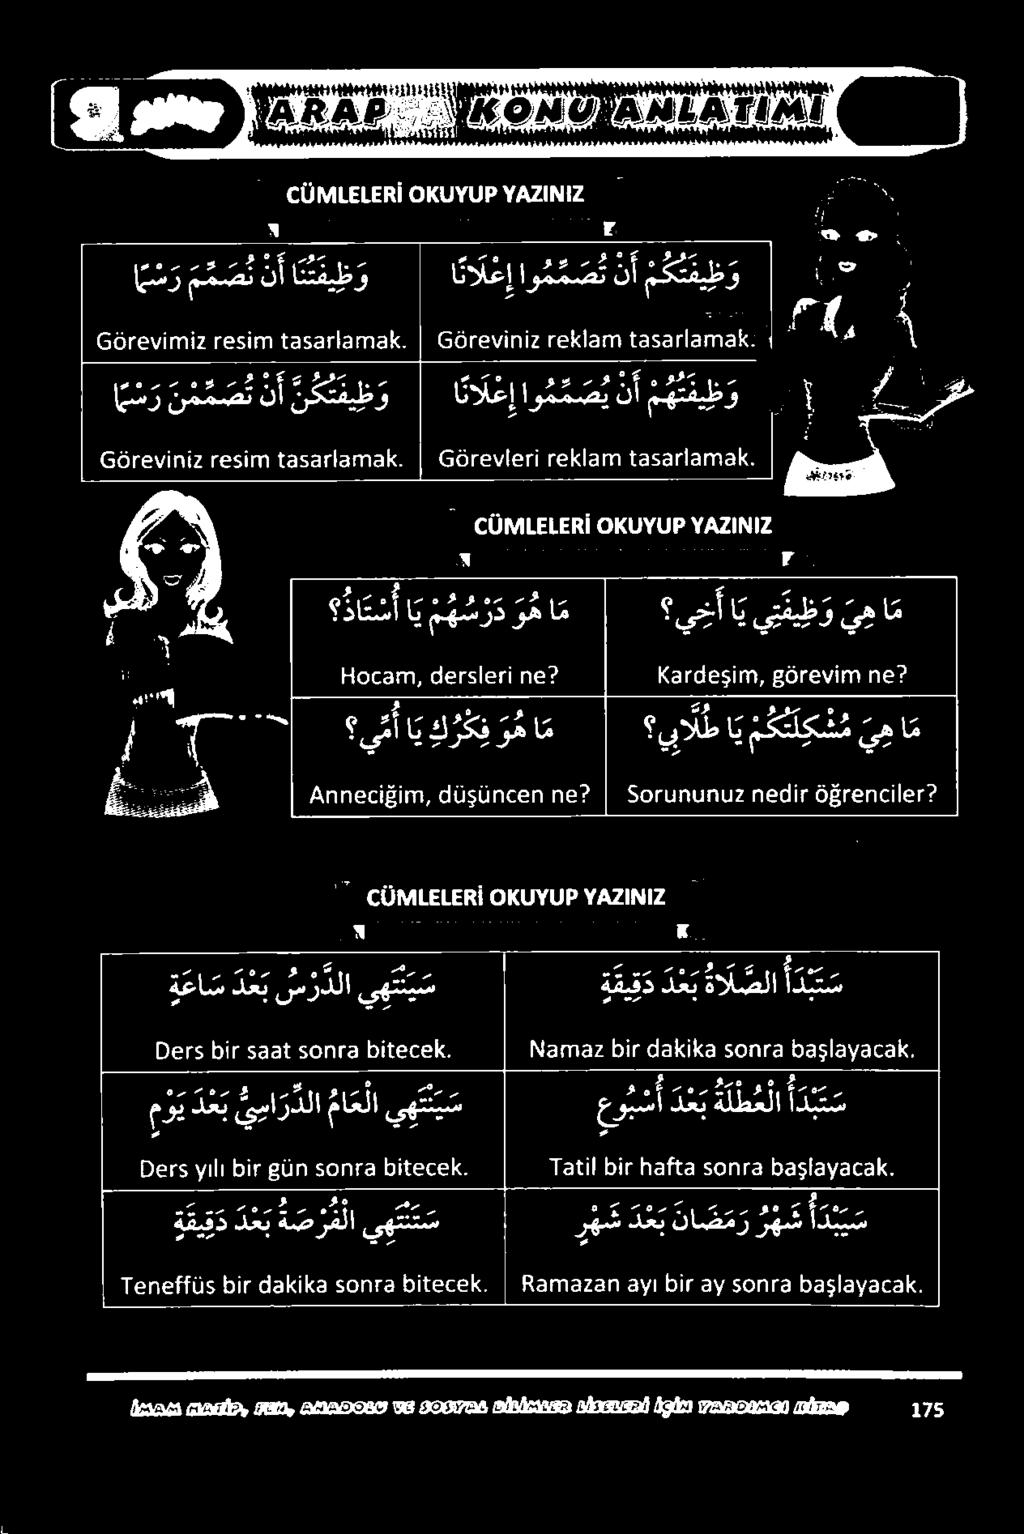 9. SINIF ARAPÇA KONU ANLATIMI
CÜMLELERİ OKUYUP YAZINIZ
وَظِيفَتُكُمْ أَنْ تُصَمِّمُوا إِعْلَانًا
وَظِيفَتُنَا أَنْ نُصَمِّمَ رَسْمًا
Göreviniz reklam tasarlamak.
Görevimiz resim tasarlamak.
وَظِيفَتُهُمْ أَنْ يُصَمِّمُوا إِعْلَانًا
وَظِيفَتُكُنَّ أَنْ تُصَمِّمْنَ رَسْمًا
Görevleri reklam tasarlamak.
Göreviniz resim tasarlamak.
CÜMLELERİ OKUYUP YAZINIZ
مَا هِيَ وَظِيفَتِي يَا أَخِي؟
مَا هُوَ دَرْسُهُمْ يَا أُسْتَاذُ؟
Kardeşim, görevim ne?
Hocam, dersleri ne?
مَا هِيَ مُشْكِلَتُكُمْ يَا طُلَّابِي؟
مَا هُوَ فِكْرُكِ يَا أُمِّي؟
Sorununuz nedir öğrenciler?
Anneciğim, düşüncen ne?
CÜMLELERİ OKUYUP YAZINIZ
سَتَبْدَأُ الصَّلَاةُ بَعْدَ دَقِيقَةٍ
سَيَنْتَهِي الدَّرْسُ بَعْدَ سَاعَةٍ
Namaz bir dakika sonra başlayacak.
Ders bir saat sonra bitecek.
سَتَبْدَأُ الْعُطْلَةُ بَعْدَ أُسْبُوعٍ
سَيَنْتَهِي الْعَامُ الدِّرَاسِيُّ بَعْدَ يَوْمٍ
Tatil bir hafta sonra başlayacak.
Ders yılı bir gün sonra bitecek.
سَيَبْدَأُ شَهْرُ رَمَضَانَ بَعْدَ شَهْرٍ
سَتَنْتَهِي الْفُرْصَةُ بَعْدَ دَقِيقَةٍ
Ramazan ayı bir ay sonra başlayacak.
Teneffüs bir dakika sonra bitecek.
İMAM HATİP, FEN, ANADOLU VE SOSYAL BİLİMLER LİSELERİ İÇİN YARDIMCI KİTAP 175